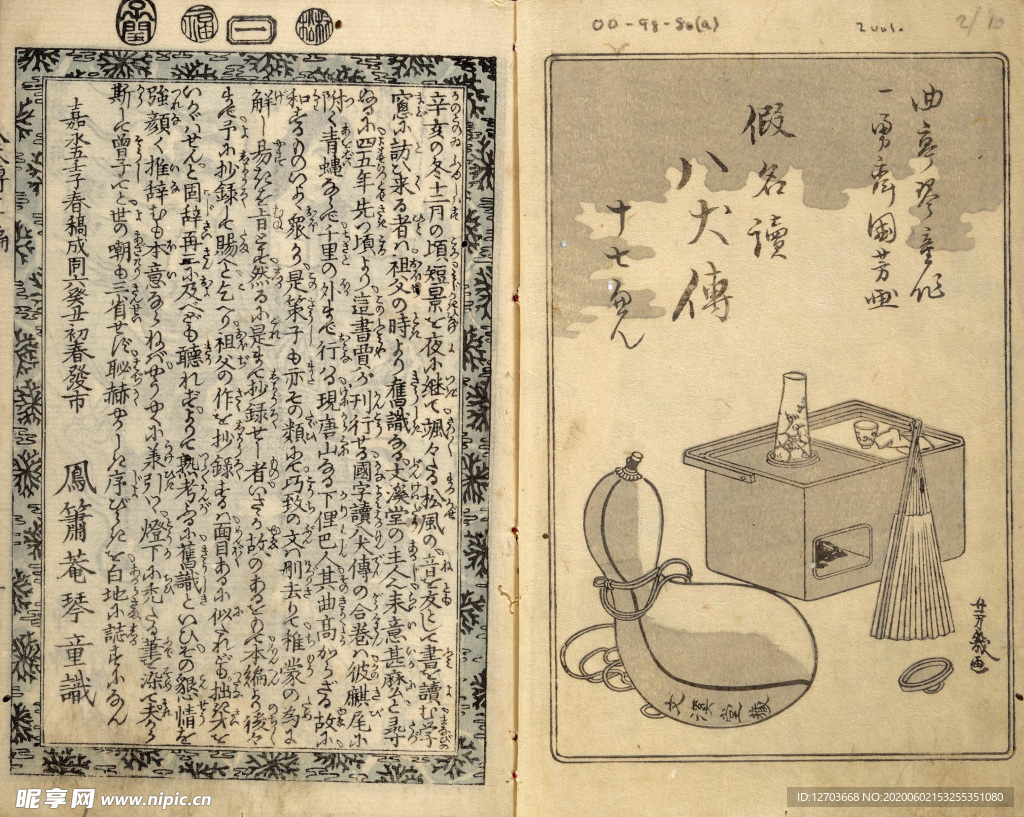 00-98-8u(a)
2 vol.
2/10
曲亭琴童作
一勇齋國芳画
假名讀
八犬傳
十七へん
廿芳幾画
文溪堂藏
辛亥の冬十二月の頃短景を夜に継て颯々たる松風の音を友にして書を讀む学
窓に訪ひ来る者ハ祖父の時より舊識なる文溪堂の主人来意甚麼と尋
ぬるに四五年先つ頃より這書賈が刊行せる國字讀八犬傳の合巻ハ彼麒尾に
附く青蠅ならで千里の外まで行るゝ現唐山なる下俚巴人其曲高からざる故に
和するものいよゝ衆かり是策子も亦その類にて巧致の文ハ刪去りて稚蒙の為に
解し易きを旨とす然るに是まで抄録せし者いさゝか故のあるをもて本編より後々
まで予に抄録して賜へと乞へり祖父の作を抄録するハ面目あるに似たれども拙きを
いかゞハせんと固辞再三に及べども聴れずよりて熟考るに舊識といひその懇情を
強顔く推辞むも本意ならねバやうやくに兼引く燈下に禿たる筆を染て夛かり
斯して曽子にも世の嘲も三省せバ恥赫やかしき序びらきを白地に誌すになん
嘉永五壬子春稿成同六癸丑初春發市
鳳簫菴琴童識
福
昵享网 www.nipic.cn
ID:12703668 NO:20200602153255351080